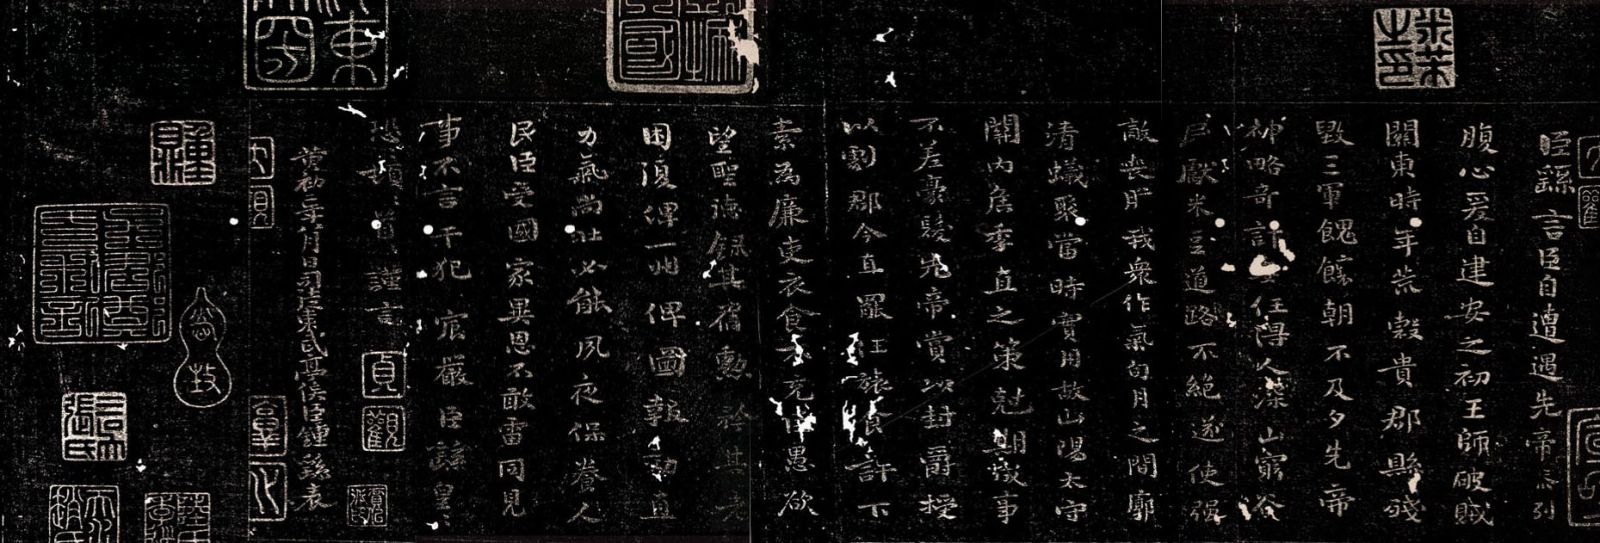 臣繇言臣自遭遇先帝忝列
腹心爰自建安之初王師破賊
關東時年荒穀貴郡縣殘
毀三軍餽饟朝不及夕先帝
神略奇計委任得人深山窮谷
民獻米豆道路不絕遂使强
敵喪膽我衆作氣旬月之間廓
清蟻聚當時實用故山陽太守
關內侯季直之策尅期成事
不差豪髮先帝賞以封爵授
以劇郡今直罷任旅食許下
素為廉吏衣食不充臣愚欲
望聖德錄其舊勳矜其老
困復俾一州俾圖報效直
力氣尚壯必能夙夜保養人
民臣受國家異恩不敢雷同見
事不言干犯宸嚴臣繇皇〻
恐〻頓〻首〻謹言
黃初二年八月日司徒東武亭侯臣鍾繇表